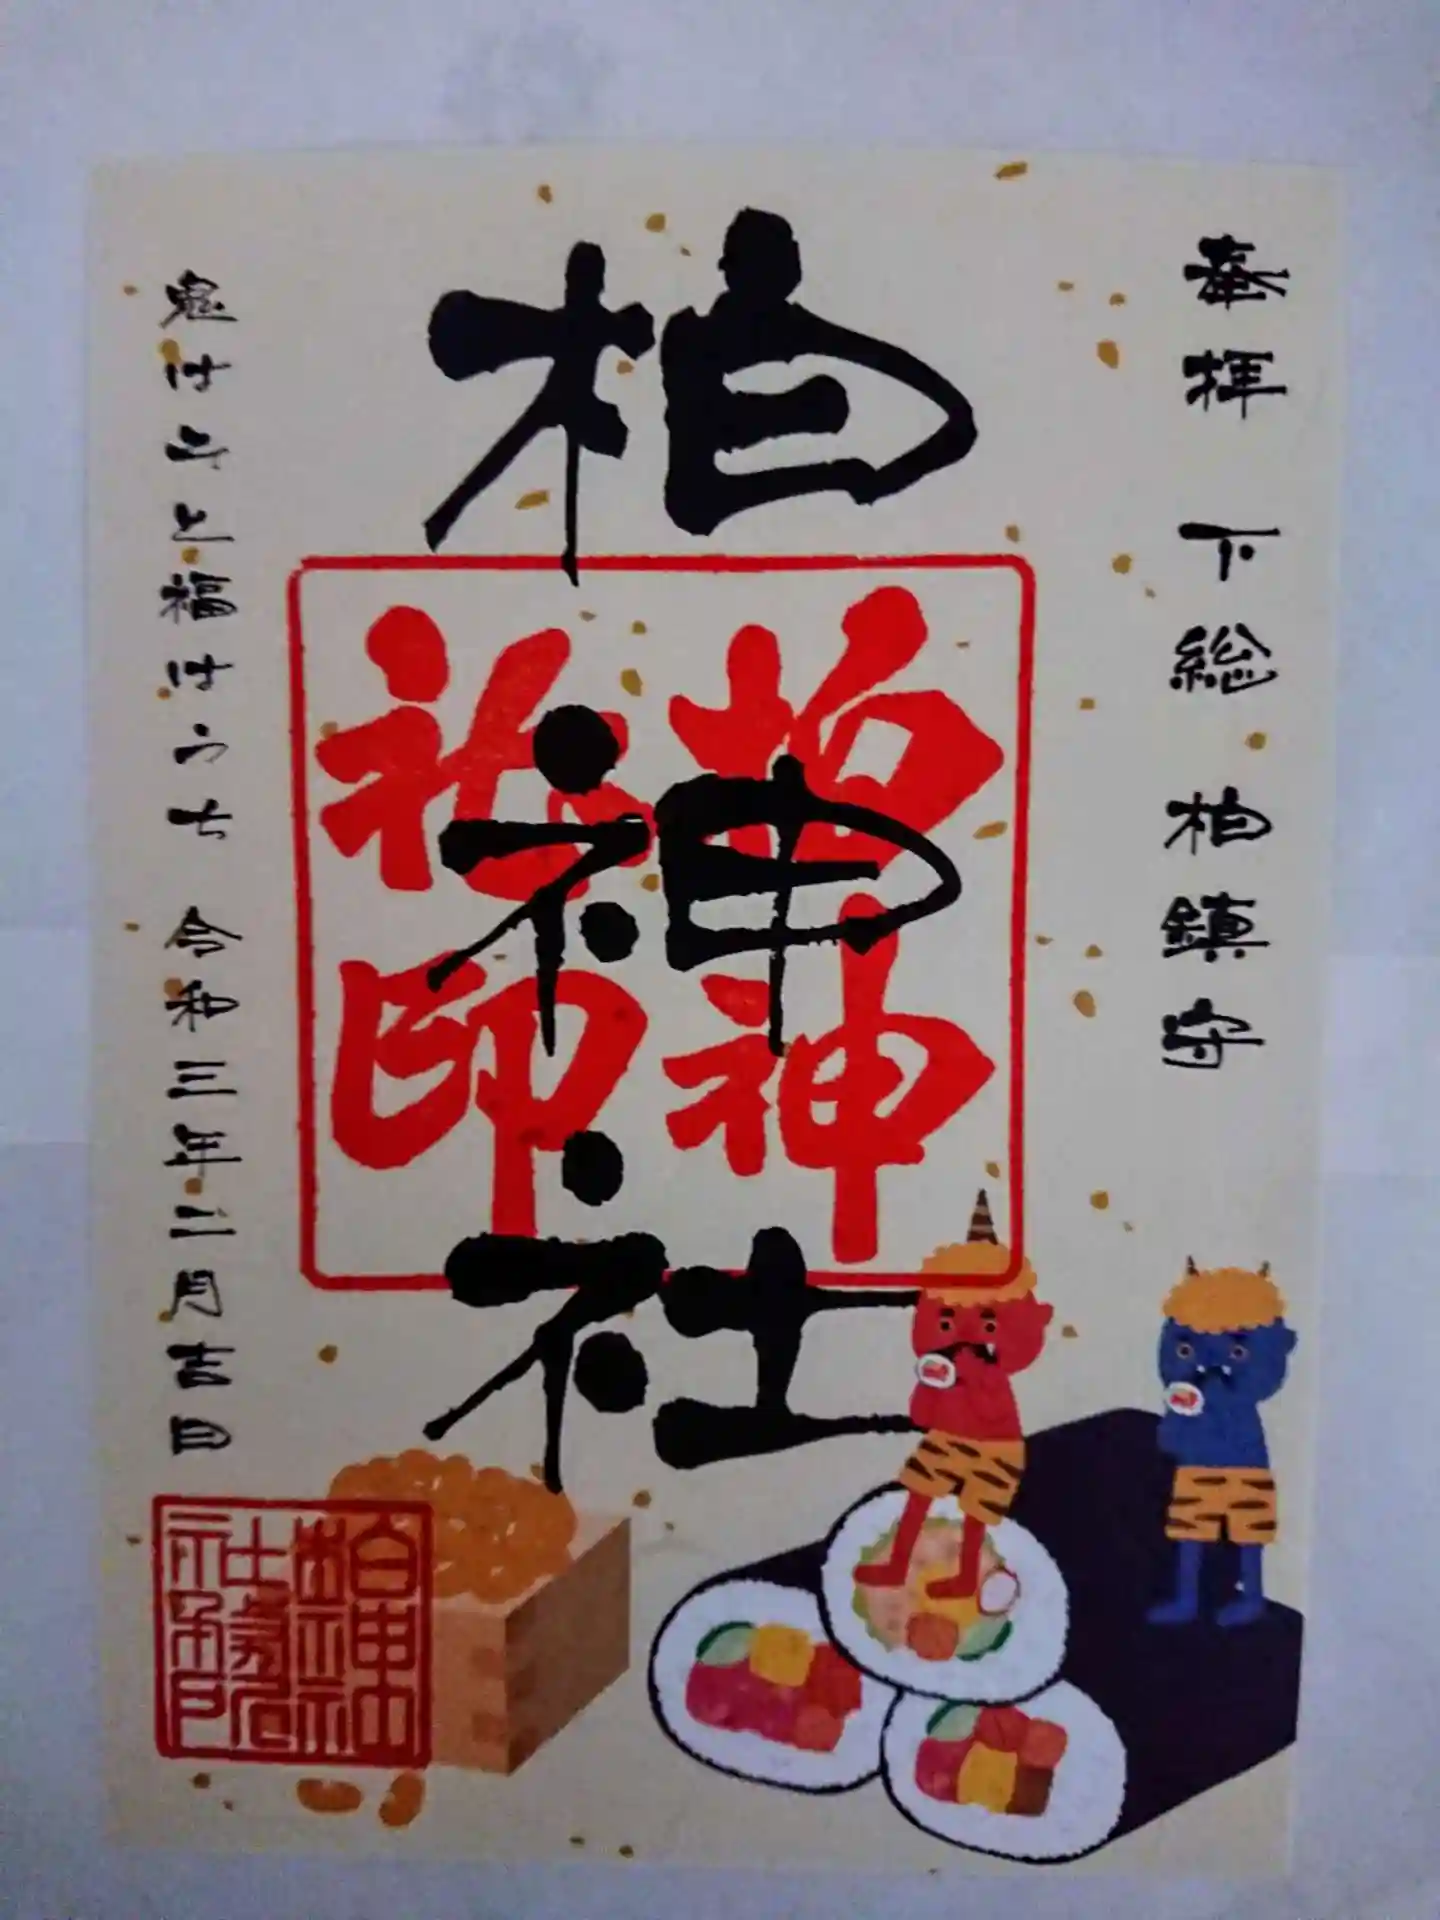 奉拝 下総 柏鎮守
柏神社
柏神
社印
鬼はそと福はうち 令和三年二月吉日
柏神
社印